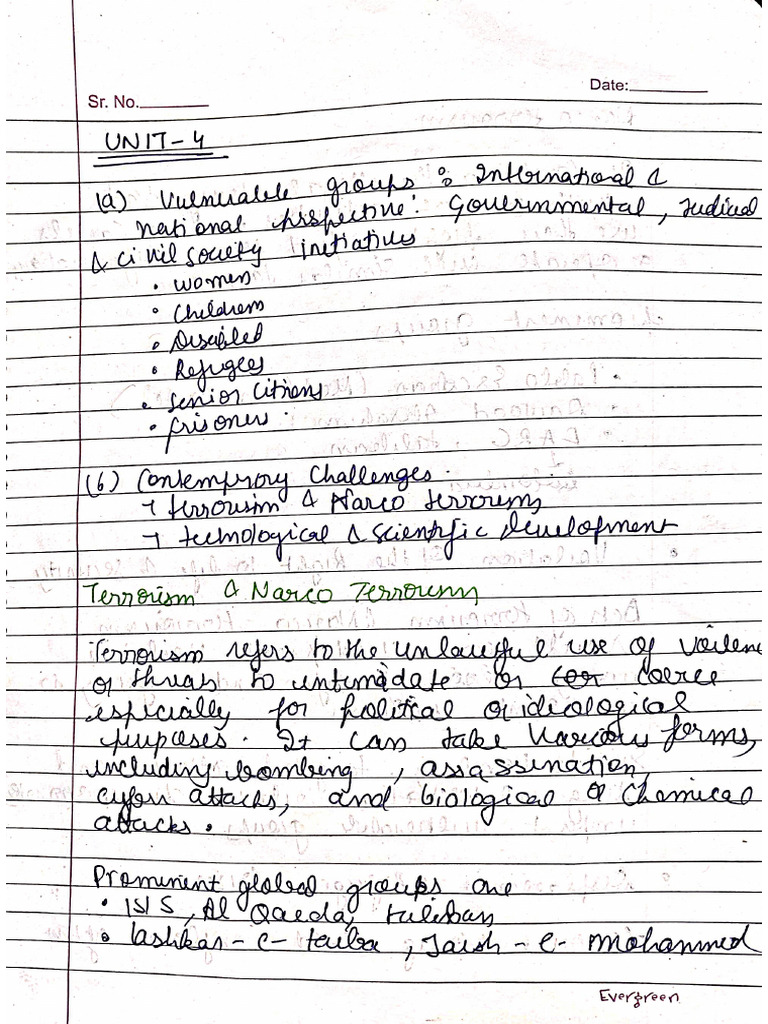 Date:
Sr. No.
UNIT-4
(a) Vulnerable groups : International &
national prspective: Governmental, Judicial
& civil society initiatives
• women
• Childrens
• Disabled
• Refugees
• Senior Citizens
• prisoners.
(b) Contemprory Challenges.
→ terrorism & Narco terrorism
→ technological & scientific development
Terrorism & Narco Terrorism
Terrorism refers to the unlawful use of voilenc
or threas to untimadate or coerce
especially for political or ideological
purposes. It can take various forms,
including bombing, assiassination,
cyber attacks, and biological & Chemical
attacks.
Prominent global groups are
• ISIS, Al Qaeda, taliban
• lashkar-e-taiba, Jaish-e-mohammed
Evergreen